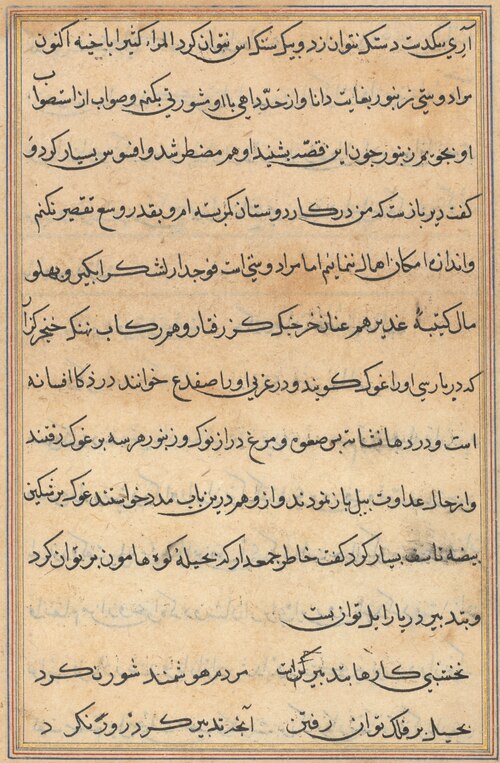 آری بیکدست دستک نتوان زد و بیک سنک اس نتوان کرد المراء کثیرا باخیه اکنون
مرا دوستی زنبور بغایت دانا و از حد داهی با او مشورتی بکنم و صواب از استصواب
او بجویم زنبور جون این قصه بشنید او هم مضطر شد و افسوس بسیار کرد و
کفت دیر بازست که من در کار دوستان کمر بسته ام و بقدر وسع تقصیر نکنم
و اندازه امکان اهمال ننمایم اما مرا دوستی است فوجدار لشکر ابکیر و پهلو
مال کتیبهٔ غدیر هم عنان خرجنک کز رفتار و هم رکاب نهنک خنجر کزار
که در پارسی او را غوک کویند و در عربی او را ضفدع خوانند در ذکا افسانه
است و در دها نشانه بس صعوه و مرغ دراز نوک و زنبور هر سه بر غوک رفتند
و از حال عداوت بیل باز نمودند و از و هم درین باب مدد خواستند غوک بر شکستن
بیضه تاسف بسیار کرد کفت خاطر جمع دار که بحیلهٔ کوه هامون بر توان کرد
و بتدبیر دریا را بل توان بست
نخشبی کارها بتدبیر کراست مردم هوشمند شور نکرد
بحیل بر فلک توان رفتن آنجه تدبیر کرد زور نکرد